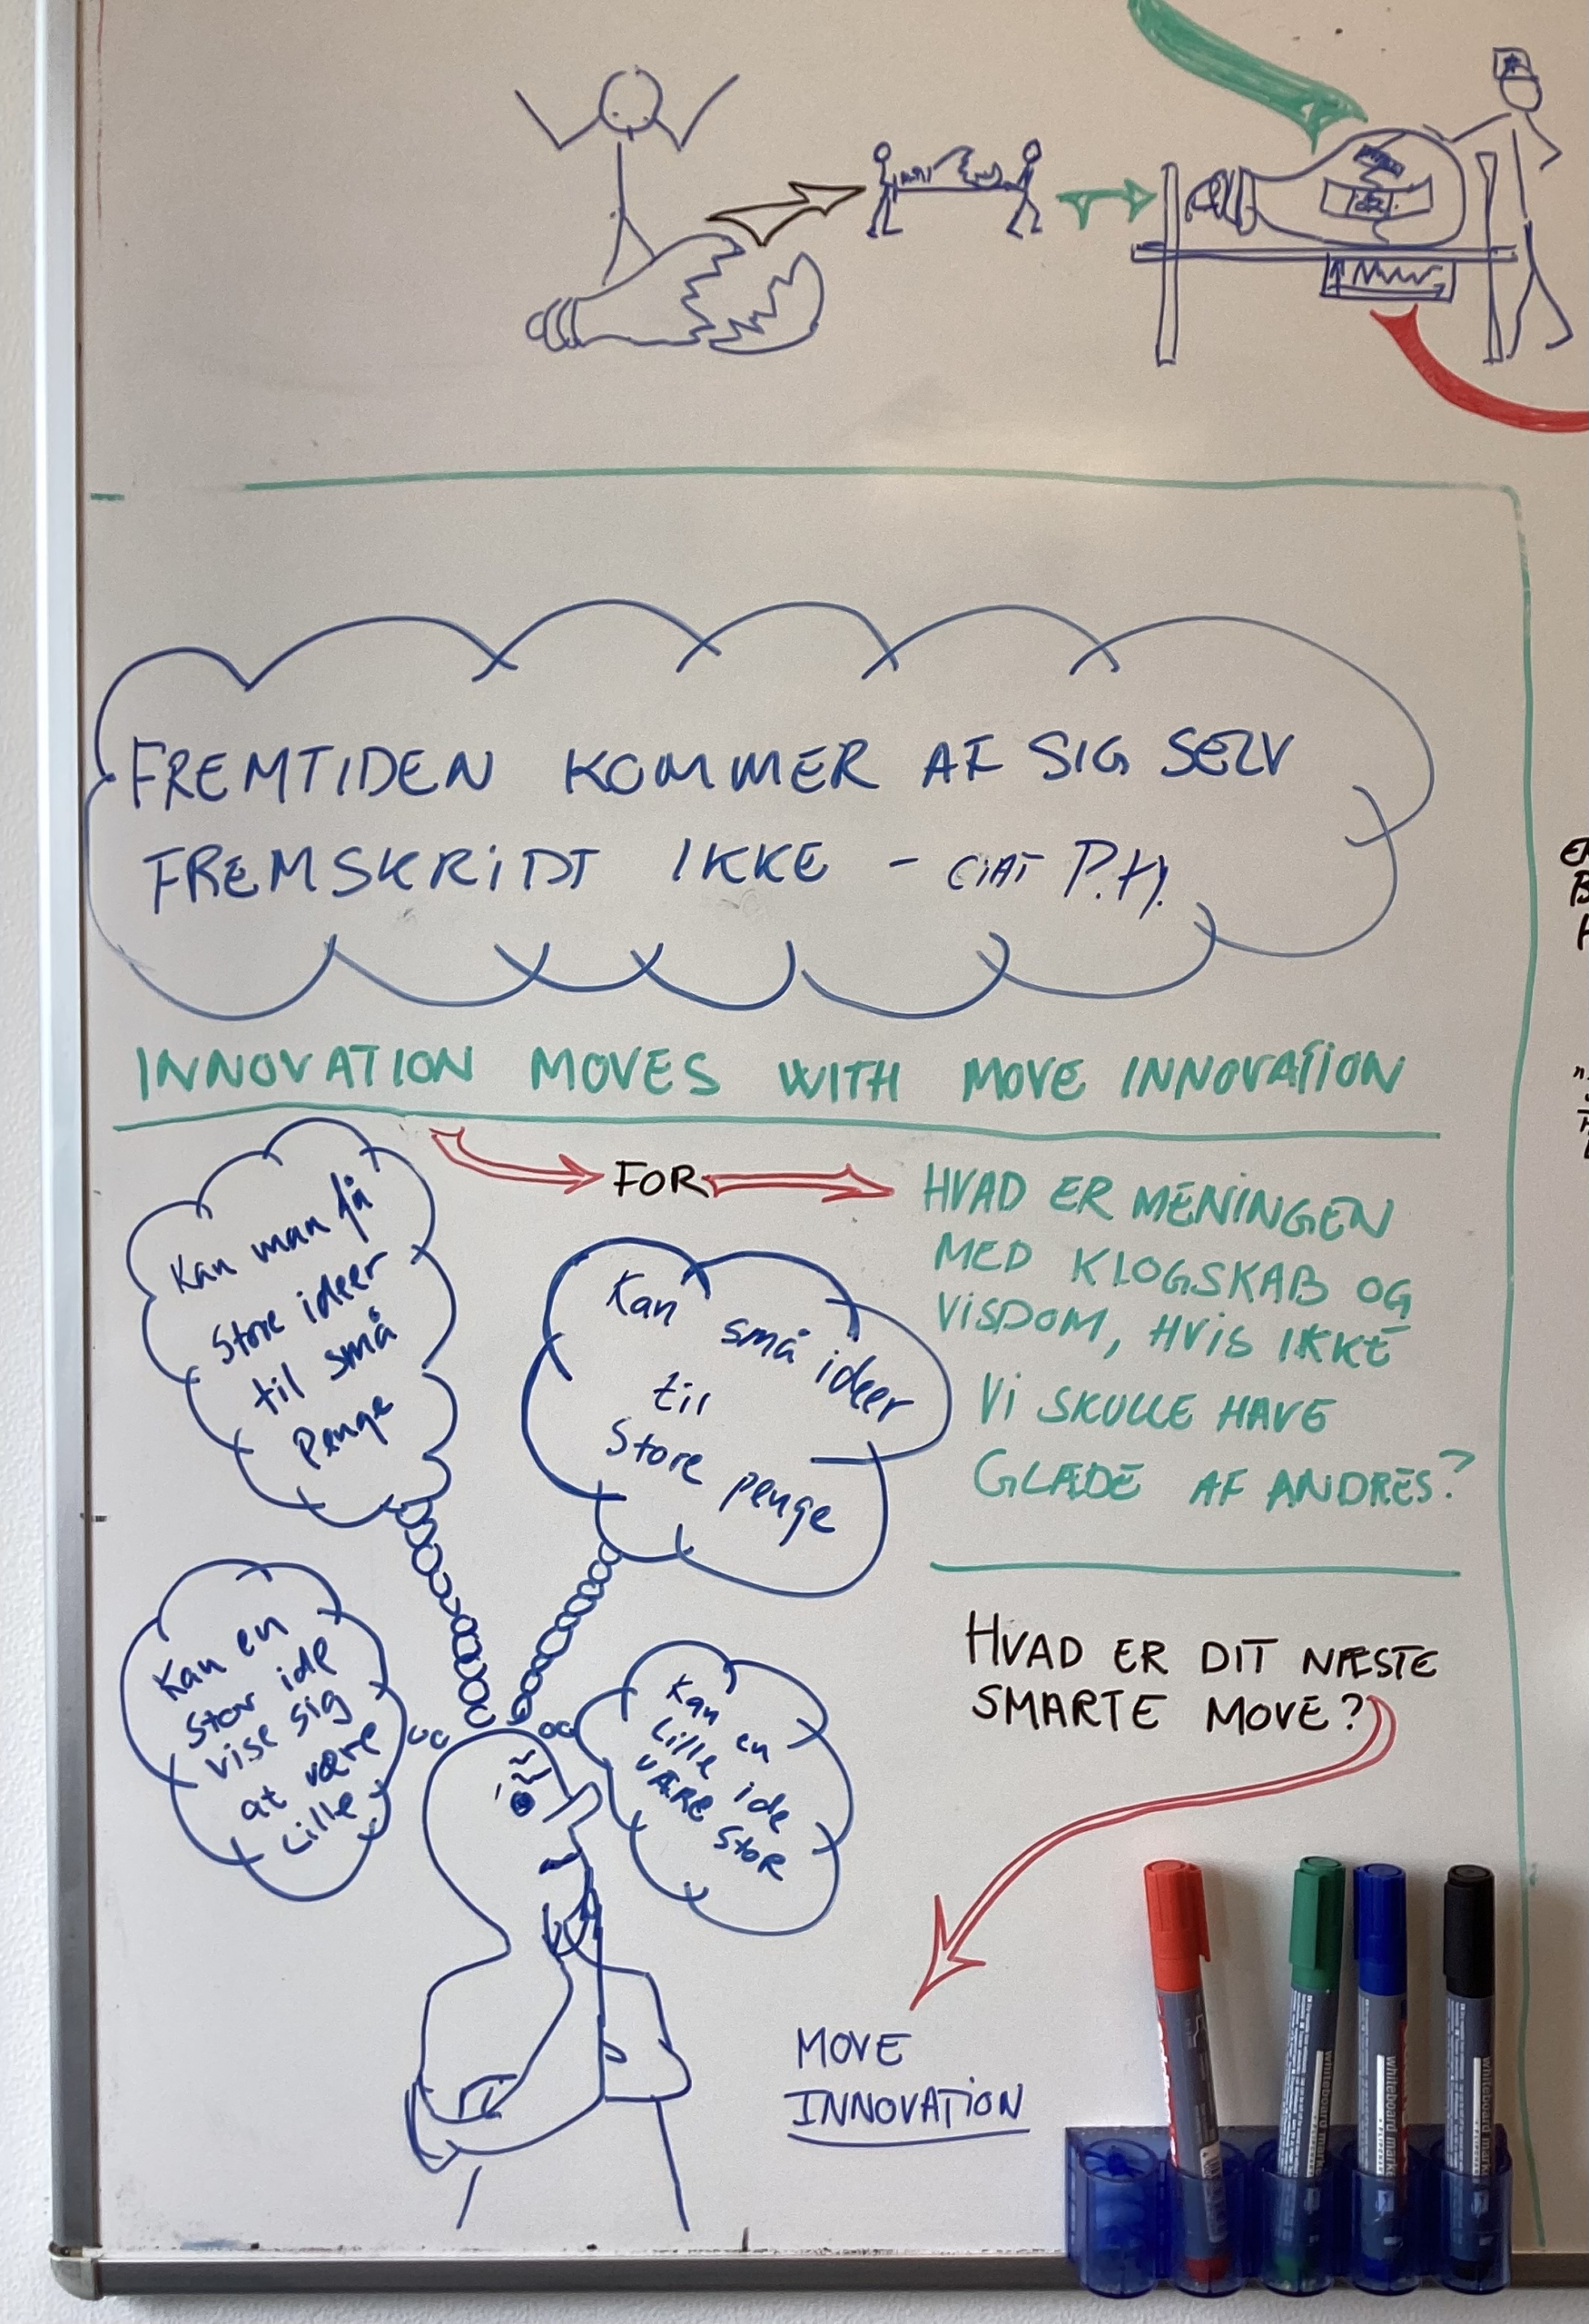 FREMTIDEN KOMMER AF SIG SELV
FREMSKRIDT IKKE - CIAT P.H.
INNOVATION MOVES WITH MOVE INNOVATION
FOR
HVAD ER MENINGEN
MED KLOGSKAB OG
VISDOM, HVIS IKKE
Vi SKULLE HAVE
GLÆDE AF ANDRES?
Kan man få
Store ideer
til små
Penge
Kan små ideer
til
Store penge
Kan en
Stor ide
vise sig
at være
Lille
Kan en
Lille ide
VÆRE STOR
HVAD ER DIT NÆSTE
SMARTE MOVE?
MOVE
INNOVATION
whiteboard marker
whiteboard marker
whiteboard marker